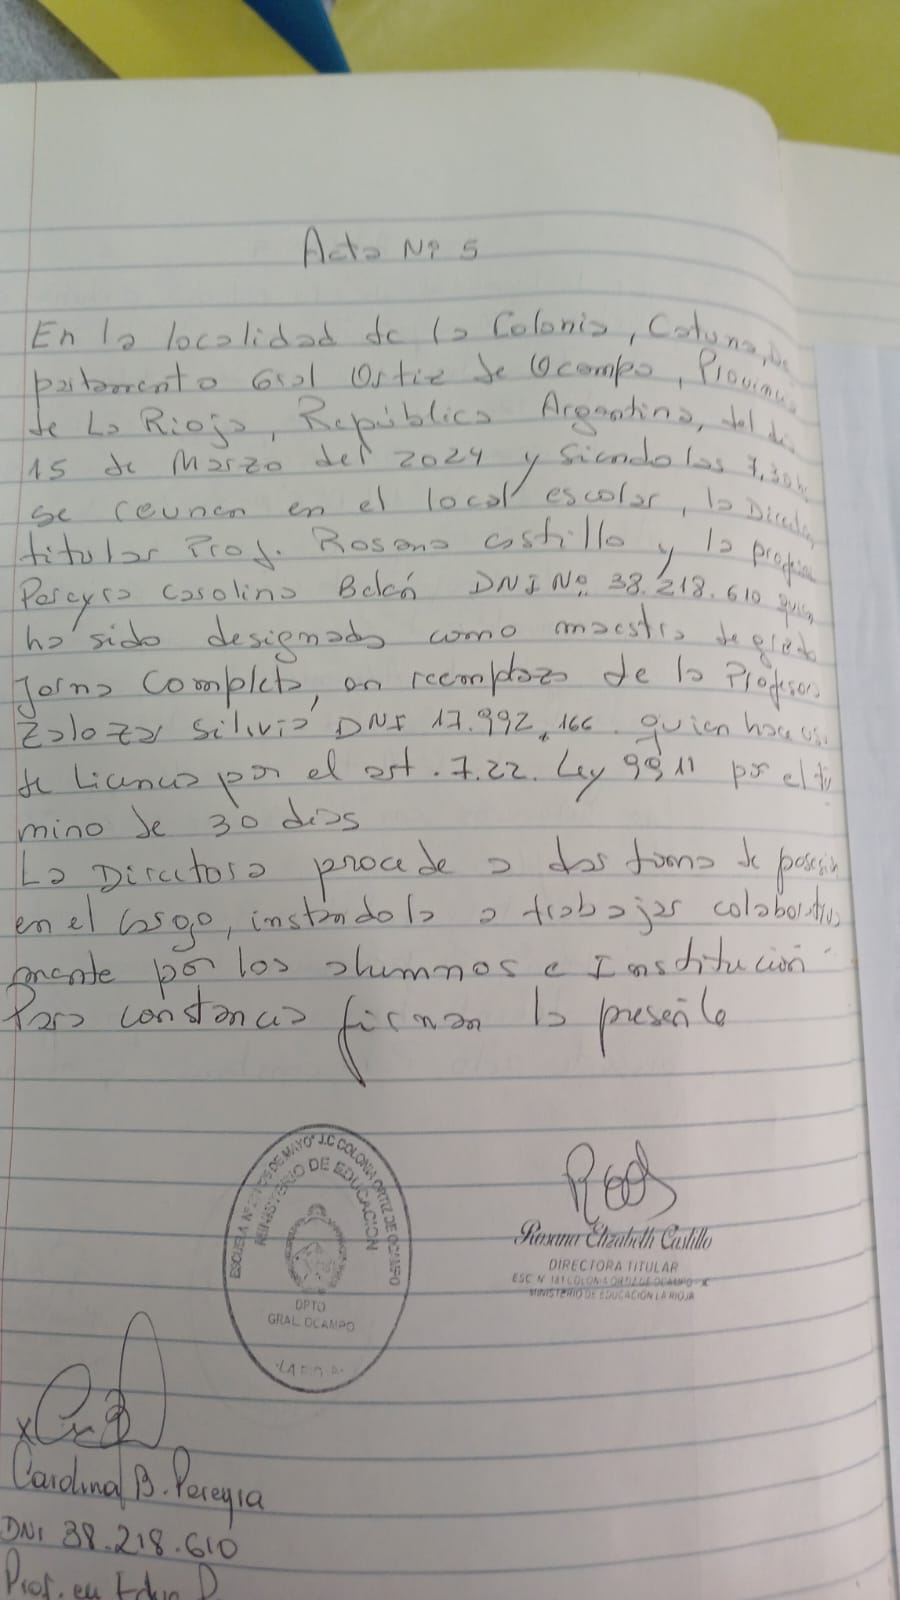 Acta Nº 5
En la localidad de la Colonia, Catuna, De
partamento Gral Ortiz de Ocampo, Provincia
de La Rioja, República Argentina, del día
15 de Marzo del 2024 y siendo las 7,30 h
se reunen en el local escolar, la Directora
titular Prof. Rosana Castillo y la profesora
Pereyra Carolina Belén DNI Nº 38.218.610 quien
ha sido designada como maestra de grado
Jorna Completa, en reemplazo de la Profesora
Zaloza Silivia DNI 17.992.166. quien hace uso
de Licencia por el art. 7.22. Ley 9911 por el tér
mino de 30 días
La Directora procede a dar toma de posesión
en el cargo, instándola a trabajar colaborativa
mente por los alumnos e Institución
Para constancia firman la presente
"DE MAYO" J.C COLONIA ORTIZ DE OCAMPO
MINISTERIO DE EDUCACION
DPTO
GRAL. OCAMPO
Rosana Elizabeth Castillo
DIRECTORA TITULAR
ESC. N° 181 COLONIA ORTIZ DE OCAMPO
MINISTERIO DE EDUCACIÓN LA RIOJA
Carolina B. Pereyra
DNI 38.218.610
Prof. en Educ. P